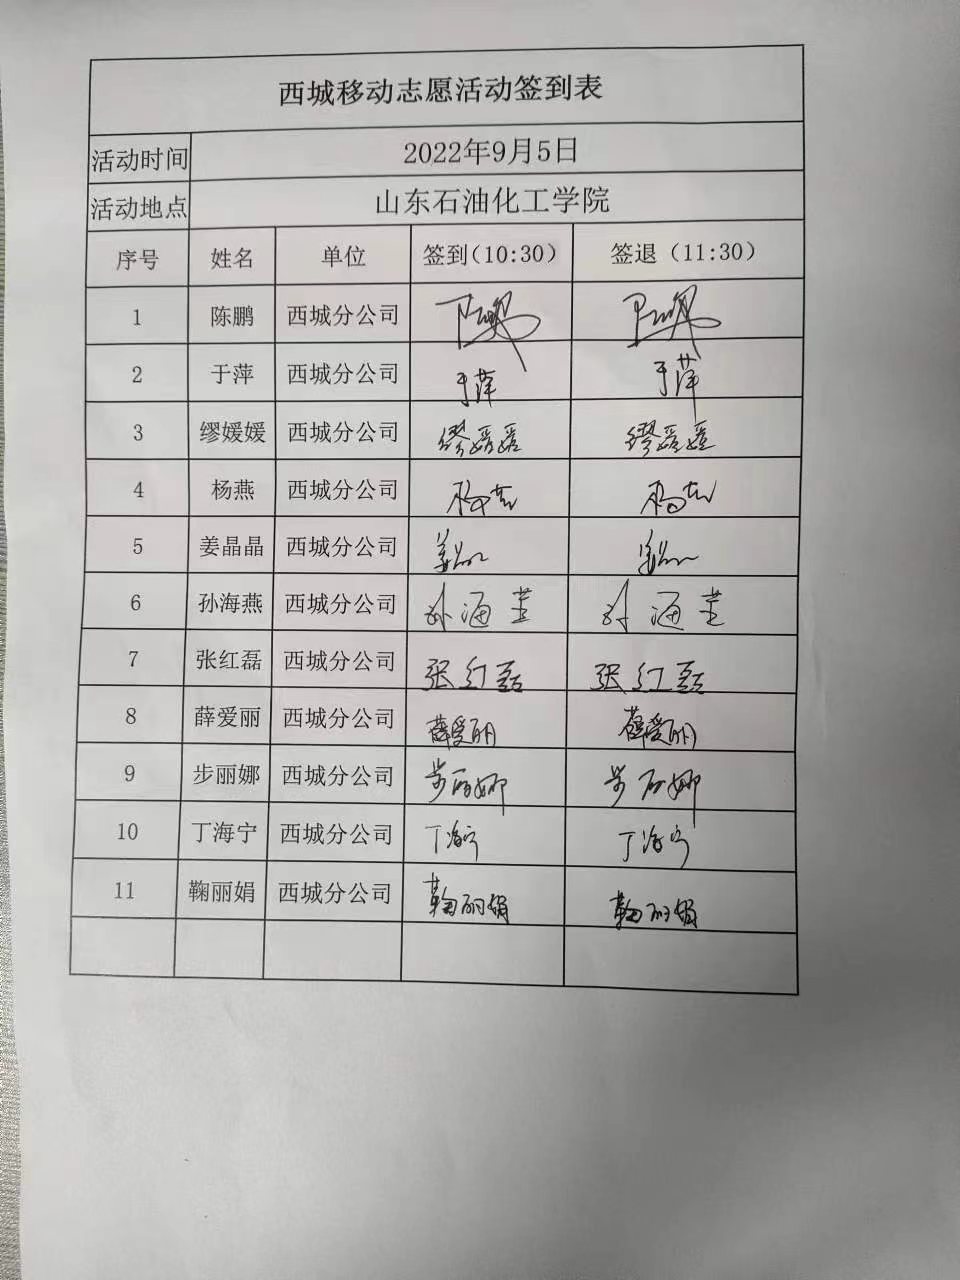 西城移动志愿活动签到表
活动时间 2022年9月5日
活动地点 山东石油化工学院
序号 姓名 单位 签到(10:30) 签退（11:30）
1 陈鹏 西城分公司 陈鹏 陈鹏
2 于萍 西城分公司 于萍 于萍
3 缪媛媛 西城分公司 缪媛媛 缪媛媛
4 杨燕 西城分公司 杨燕 杨燕
5 姜晶晶 西城分公司 姜晶晶 姜晶晶
6 孙海燕 西城分公司 孙海燕 孙海燕
7 张红磊 西城分公司 张红磊 张红磊
8 薛爱丽 西城分公司 薛爱丽 薛爱丽
9 步丽娜 西城分公司 步丽娜 步丽娜
10 丁海宁 西城分公司 丁海宁 丁海宁
11 鞠丽娟 西城分公司 鞠丽娟 鞠丽娟